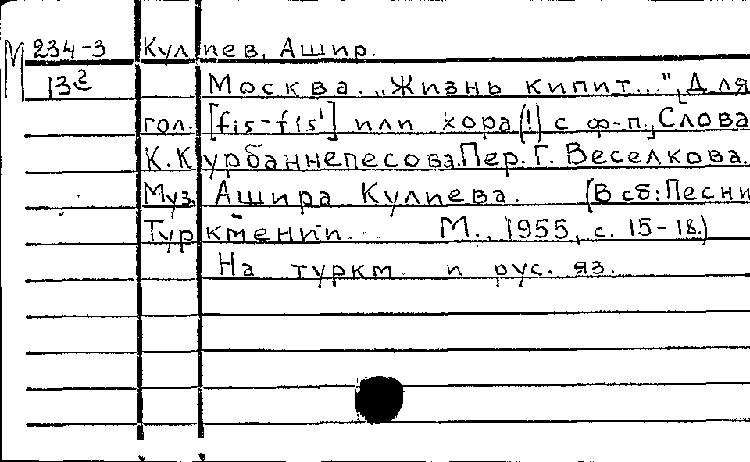 М 234-3 Кулиев, Ашир.
13² Москва. „Жизнь кипит..." Для
гол. [fis-fis¹] или хора (!) с ф-п. Слова
К. Курбаннепесова. Пер. Г. Веселкова.
Муз. Ашира Кулиева. (В сб: Песни
Туркмении... М., 1955, с. 15-18.)
На туркм. и рус. яз.